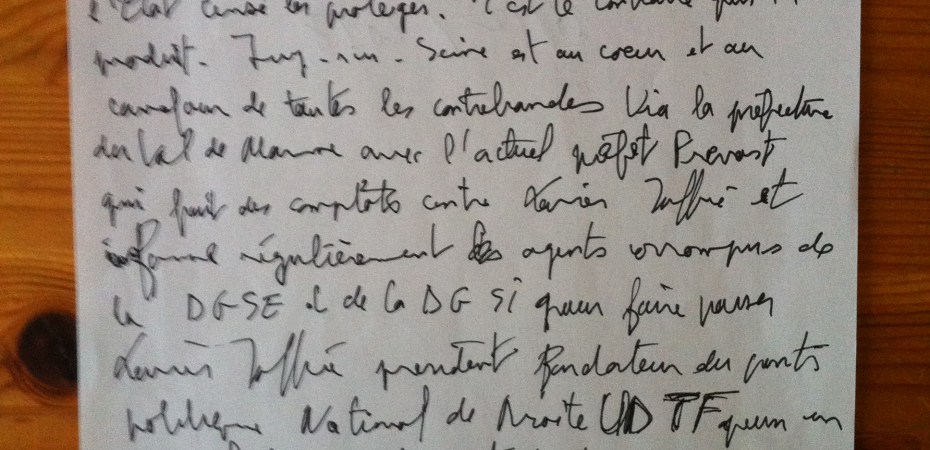 l'Etat censé les protéger. C'est le contraire qui
produit. Ivry-sur-Seine est au coeur et au
carrefour de toutes les contrebandes via la préfecture
du Val de Marne avec l'actuel préfet Prevost
qui fait des complots contre et
informe régulièrement les agents corrompus de
la DGSE et de la DGSI pour faire passer
président fondateur du parti
politique National de Droite UDTF pour un